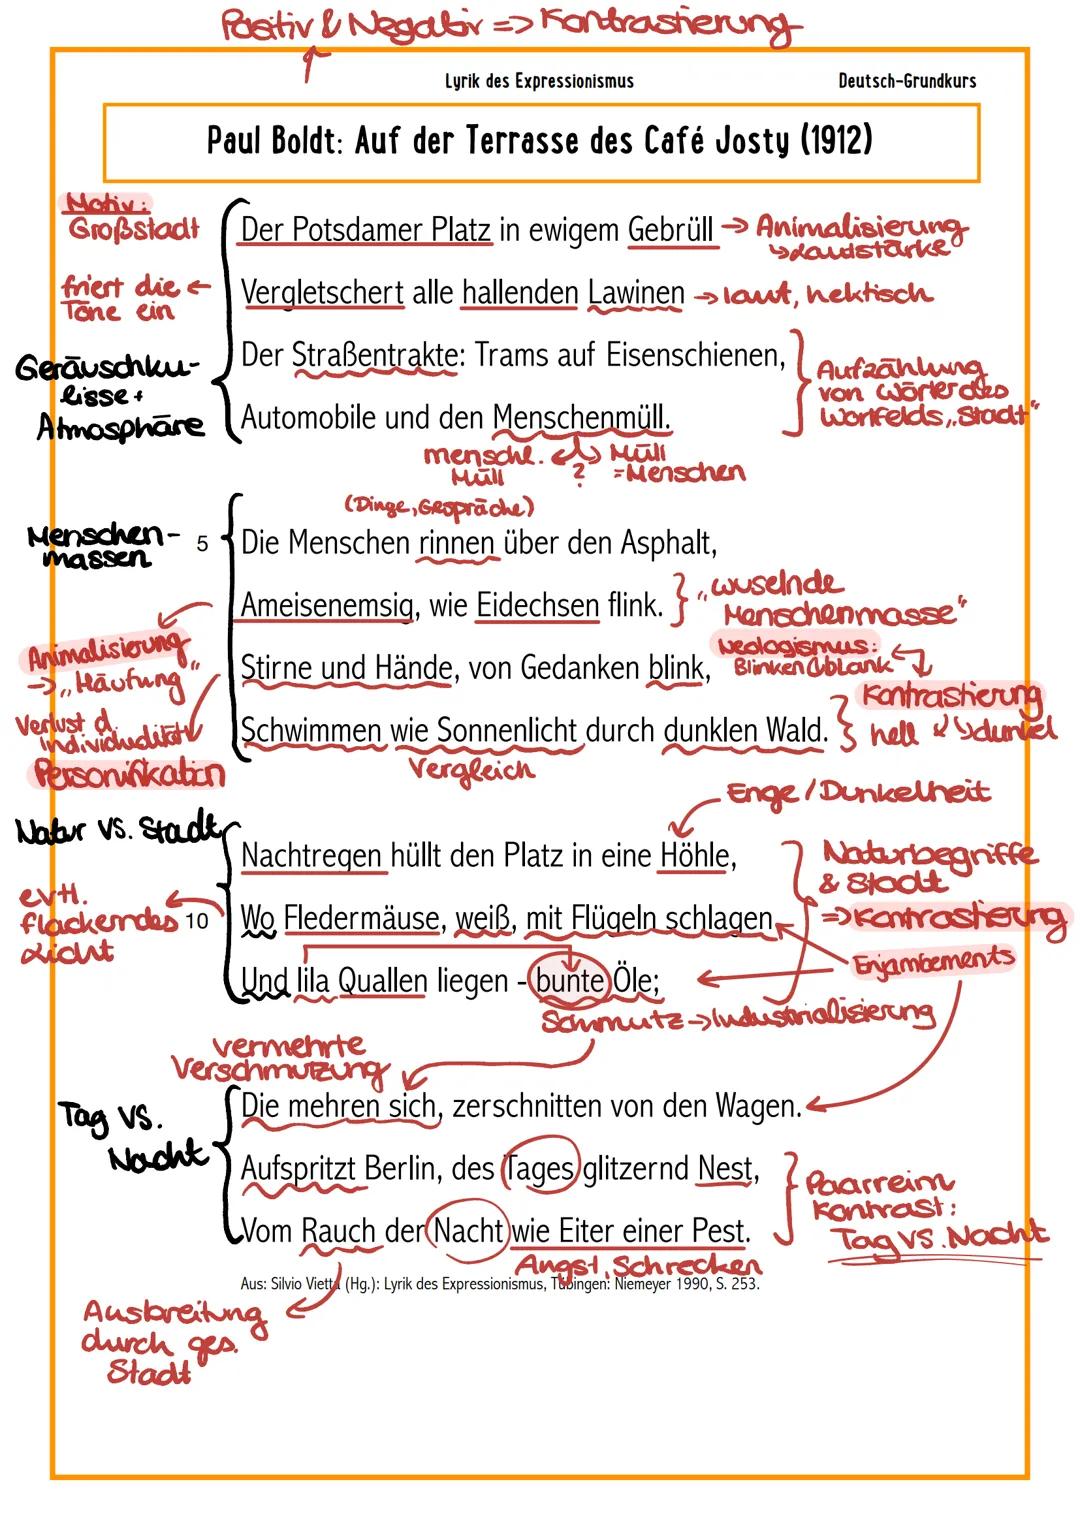 Positiv & Negativ => Kontrastierung
Lyrik des Expressionismus
Deutsch-Grundkurs
Paul Boldt: Auf der Terrasse des Café Josty (1912)
Motiv:
Großstadt
Der Potsdamer Platz in ewigem Gebrüll
→ Animalisierung
↳ Lautstärke
friert die ←
Töne ein
Vergletschert alle hallenden Lawinen
→ laut, hektisch
Geräuschku-
lisse +
Atmosphäre
Der Straßentrakte: Trams auf Eisenschienen,
Automobile und den Menschenmüll.
Aufzählung
von Wörter des
Wortfelds „Stadt"
menschl.
Müll
?
Müll
=Menschen
(Dinge, Gespräche)
Menschen-
massen
5
Die Menschen rinnen über den Asphalt,
Ameisenemsig, wie Eidechsen flink.
„wuselnde
Menschenmasse"
Animalisierung
→ „Häufung"
Stirne und Hände, von Gedanken blink,
Neologismus:
Blinken & blank
Verlust d.
Individualität
Personifikation
Schwimmen wie Sonnenlicht durch dunklen Wald.
Kontrastierung
hell ↙ ↘ dunkel
Vergleich
Enge / Dunkelheit
Natur vs. Stadt
Nachtregen hüllt den Platz in eine Höhle,
Naturbegriffe
& Stadt
=> Kontrastierung
evtl.
flackerndes
Licht
10
Wo Fledermäuse, weiß, mit Flügeln schlagen
Enjambements
Und lila Quallen liegen - bunte Öle;
Schmutz → Industrialisierung
vermehrte
Verschmutzung
Tag vs.
Nacht
Die mehren sich, zerschnitten von den Wagen.
Aufspritzt Berlin, des Tages glitzernd Nest,
Vom Rauch der Nacht wie Eiter einer Pest.
Paarreim
Kontrast:
Tag vs. Nacht
Angst, Schrecken
Aus: Silvio Vietta (Hg.): Lyrik des Expressionismus, Tübingen: Niemeyer 1990, S. 253.
Ausbreitung
durch ges.
Stadt